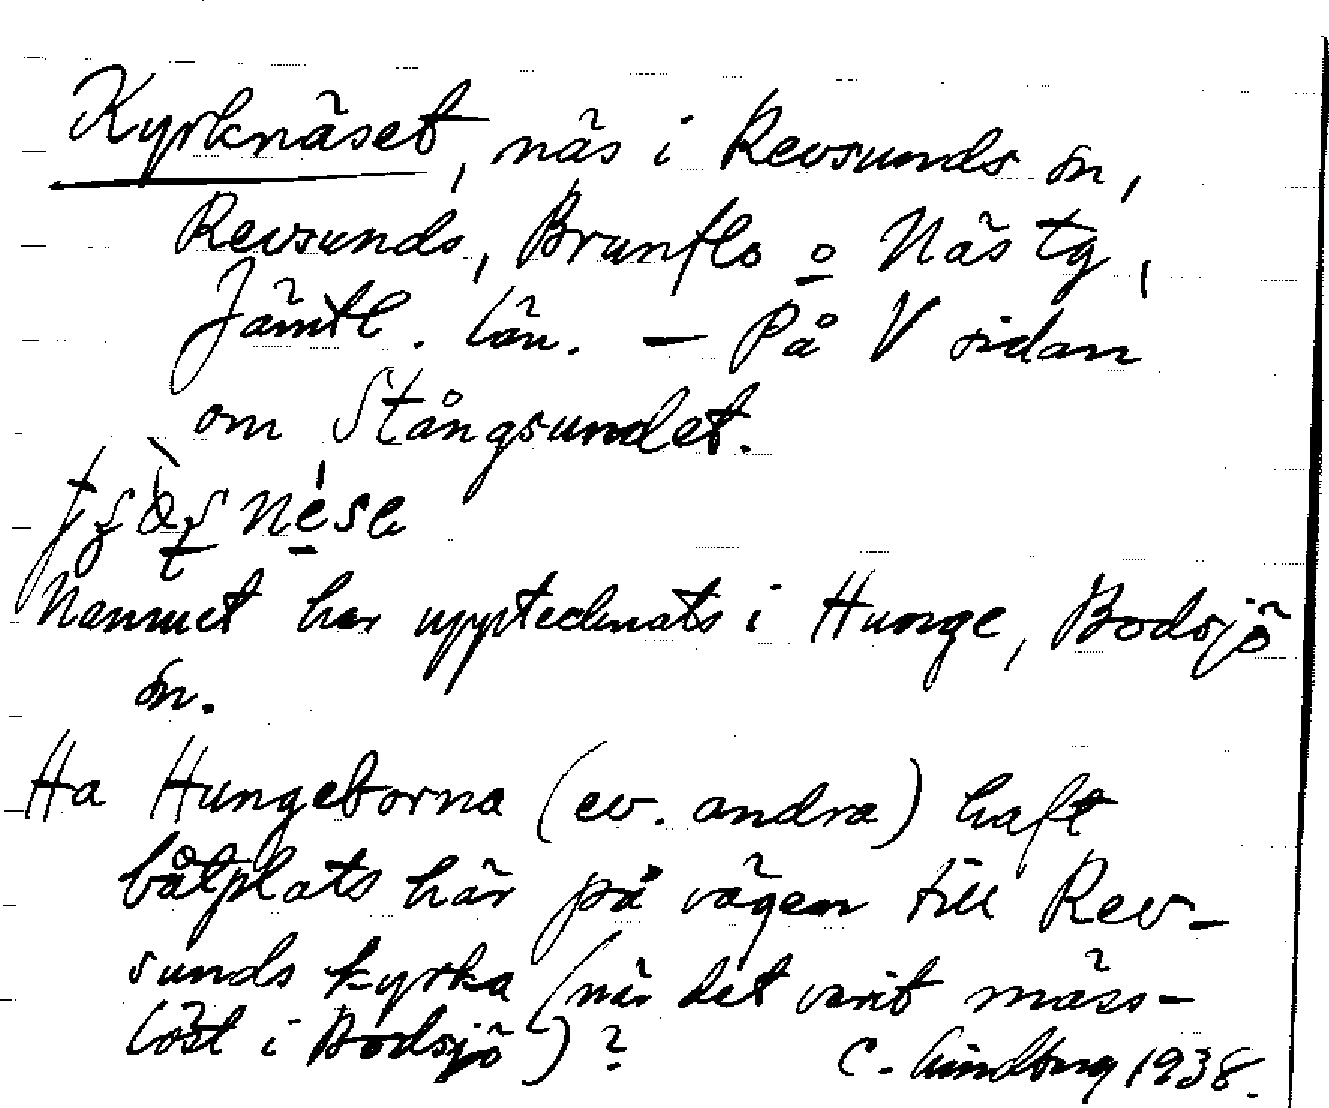 Kyrknäset, näs i Revsunds sn,
Revsunds, Brunflo o Näs tg,
Jämtl. län. — På V sidan
om Stångsundet.
Namnet har upptecknats i Hunge, Bodsjö
sn.
Ha Hungeborna (ev. andra) haft
båtplats här på vägen till Rev-
sunds kyrka (när det varit mäss-
löst i Bodsjö)? C. Lindberg 1938.